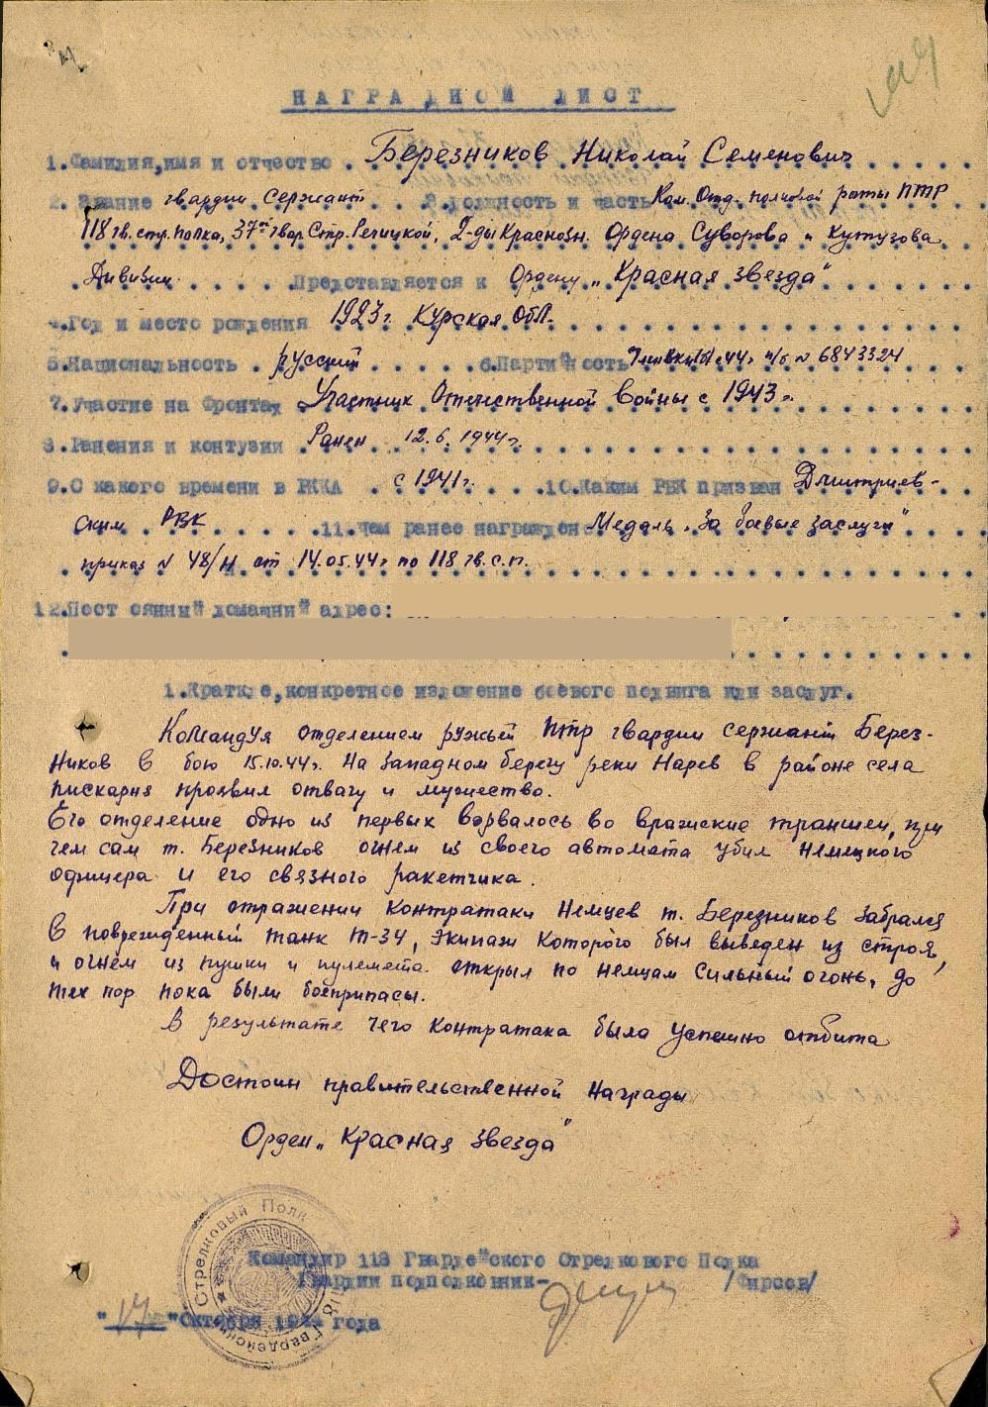 НАГРАДНОЙ ЛИСТ
1.Фамилия,имя и отчество . Березников Николай Семенович
2. Звание гвардии сержант 3.Должность и часть Ком. Отд. полковой роты ПТР
118 гв. стр. полка, 37й гвар. Стр. Речицкой, 2-ды Краснозн. Ордена Суворова и Кутузова
Дивизии. Представляется к Ордену „Красная звезда"
4.Год и место рождения 1923г. Курская Обл.
5.Национальность . русский 6.Партийность ВКП(б) 44г п/б N 6843324
7.Участие на Фронтах Участник Отечественной Войны с 1943г.
8.Ранения и контузии Ранен 12.6.1944г.
9.С какого времени в РККА . с 1941г. 10.Каким РВК призван Дмитриев-
ским РВК 11.чем ранее награжден Медаль „За боевые заслуги"
приказ N 48/Н от 14.05.44г по 118 гв.с.п.
12.Постоянный домашний адрес:
1.Краткое,конкретное изложение боевого подвига или заслуг.
Командуя отделением ружей ПТР гвардии сержант Берез-
ников в бою 15.10.44г. на западном берегу реки Нарев в районе села
пискарня проявил отвагу и мужество.
Его отделение одно из первых ворвалось во вражские траншеи, при
чем сам т. Березников огнем из своего автомата убил немецкого
офицера и его связного ракетчика.
При отражении контратаки Немцев т. Березников забрался
в поврежденный танк Т-34, экипаж которого был выведен из строя,
и огнём из пушки и пулемета открыл по немцам сильный огонь, до
тех пор пока были боеприпасы.
В результате чего контратака была успешно отбита
Достоин правительственной награды
Орден „Красная звезда"
Стрелковый Полк
118 Гвардейский
Командир 118 Гвардейского Стрелкового Полка
Гвардии подполковник- /Фирсов/
"17" Октября 1944 года